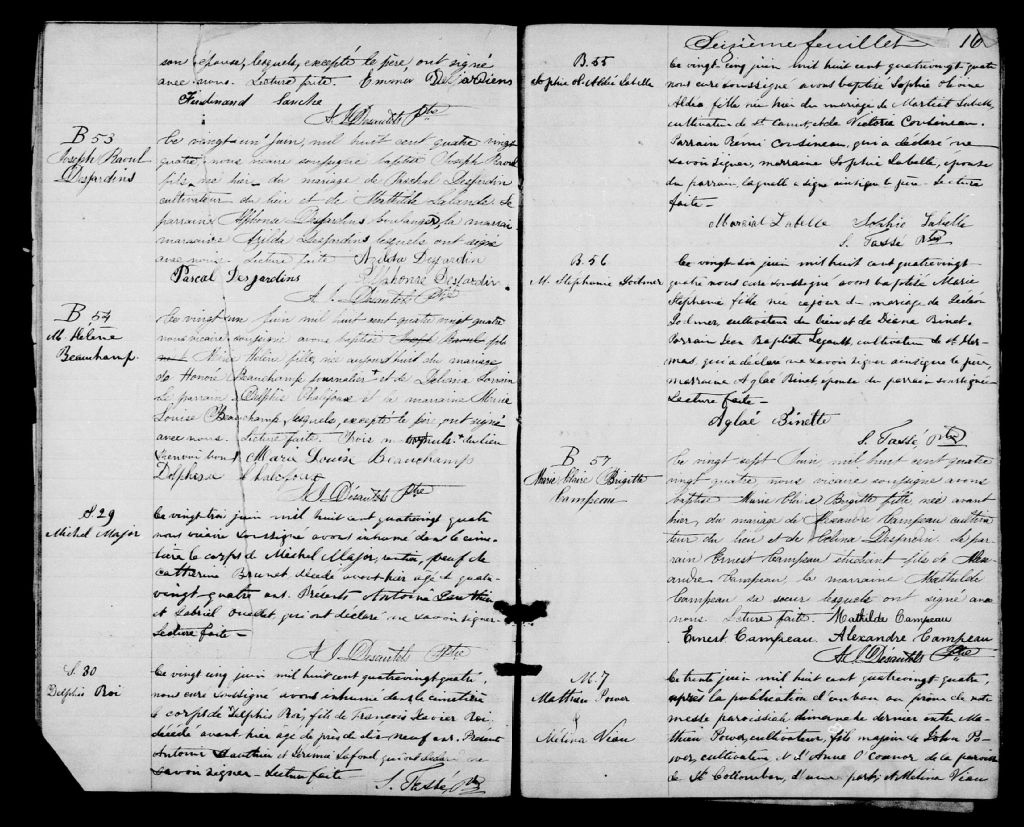 son épouse, lesquels, excepté le père, ont signé
avec nous. Lecture faite. Emma Desjardiens
Ferdinand
A. J. Désautels Ptre
B 53
Joseph Raoul
Desjardins
Ce vingt un juin, mil huit cent quatre vingt
quatre, nous vicaire soussigné baptisé Joseph Raoul
fils né hier du mariage de Paschal Desjardin
cultivateur du lieu et de Mathilde Lalande. Le
parrain, Desjardins boulanger, la marrai
marraine Azilda Desjardins lesquels ont signé
avec nous. Lecture faite. Azilda Desjardin
Pascal Desjardins Alphonse Desjardin
A. J. Désautels Ptre
B 54
M. Hélène
Beauchamp
Ce vingt un Juin mil huit cent quatre vingt quatre
nous vicaire soussigné avons baptisé Joseph Raoul fils
Marie Hélène fille, née aujourd'hui du mariage
de Honoré Beauchamp journalier + et de Délima Lorrain
Le parrain Delphis Chalifoux et la marraine Marie
Louise Beauchamp, lesquels, excepté le père, ont signé
avec nous. Lecture faite. Trois mots nuls. + du lieu
renvoi bon. Marie Louise Beauchamp
Delphese Chalefoux
A. J. Désautels Ptre
S. 29
Michel Major
Ce vingt trois juin mil huit cent quatrevingt quatre
nous vicaire soussigné avons inhumé dans le cime-
tière le corps de Michel Major, rentier, veuf de
Catherine Brunet, décédé avant-hier agé de quatre-
vingt-quatre ans. Présents Antoine Gauthier
et Gabriel Ouellet qui ont déclaré ne savoir signer-
Lecture faite -
A. J. Désautels Ptre
S. 30
Delphis Roi
Ce vingt cinq juin mil huit cent quatrevingt quatre,
nous curé soussigné avons inhumé dans le cimetière
le corps de Delphis Roi, fils de François Xavier Roi
décédé avant hier agé de près de dix neuf ans. Présent
Antoine Gauthier et Jérémie Lafond qui ont déclaré ne
savoir signer - Lecture faite
S. Tassé, Ptre
Seizième feuillet 16
B. 55
Sophie O. Aldéa Labelle
Ce vingt cinq juin mil huit cent quatrevingt quatre
nous curé soussigné avons baptisé Sophie Olivine
Aldéa fille née hier du mariage de Martial Labelle,
cultivateur de St Canut, et de Victoria Cousineau.
Parrain Rémi Cousineau, qui a déclaré ne
savoir signer, marraine Sophie Labelle, épouse
du parrain, laquelle a signé ainsi que le père. Lecture
faite -
Marcial Labelle Sophie Labelle
S. Tassé Ptre
B. 56
M. Stéphanie Godmer
Ce vingt-six juin mil huit cent quatrevingt
quatre nous curé soussigné avons baptisé Marie
Stéphanie fille née ce jour du mariage de Gédéon
Godmer, cultivateur du lieu et de Diana Binet.
Parrain Jean Baptiste Legault, cultivateur de St Her-
mas, qui a déclaré ne savoir signer ainsi que le père,
marraine Aglaé Binet épouse du parrain soussignée
Lecture faite -
Aglaé Binette
S. Tassé Ptre
B 57
Marie Claire Brigitte
Campeau
Ce vingt sept Juin, mil huit cent quatre
vingt quatre nous vicaire soussigné avons
baptisé Marie Claire Brigitte fille née avant
hier, du mariage de Alexandre Campeau cultiva
teur du lieu et de Délina Le par
rain Ernest Campeau étudiant fils de Alex-
andre Campeau, la marraine Mathilde
Campeau sa sœur lesquels ont signé avec
nous. Lecture faite. Mathilde Campeau
Ernest Campeau. Alexandre Campeau
A. J. Désautels Ptre
M. 7
Matthieu Power
&
Mélina Viau
Ce trente juin mil huit cent quatrevingt quatre,
après la publication d'un ban au prône de notre
messe paroissiale dimanche dernier entre Ma-
thieu Power, cultivateur, fils majeur de John P-
ower, cultivateur, et d'Anne O'Connor de la paroisse
de St Colomban, d'une part; et Mélina Viau